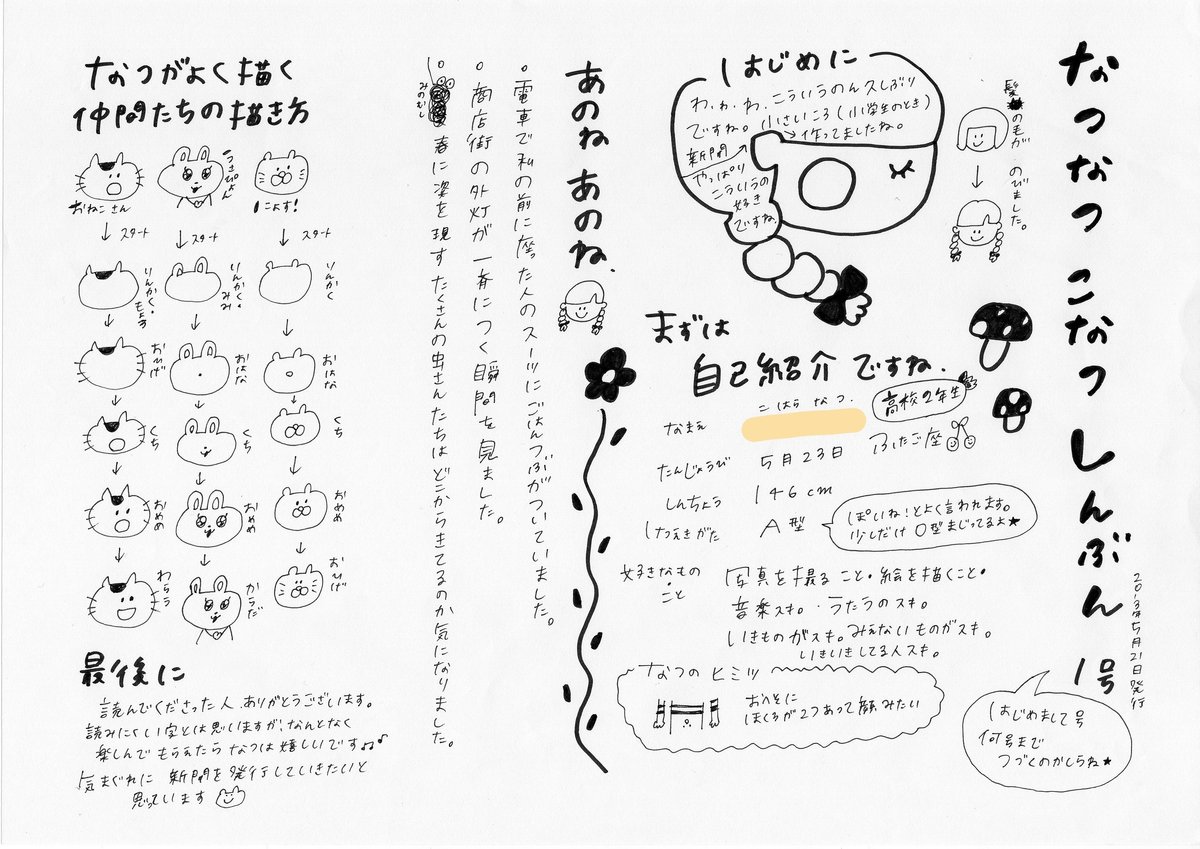 なつなつ こなつ しんぶん 1号
2013年5月21日発行
はじめまして号
何号まで
つづくのかしらね★
髪の毛が
のびました。
はじめに
わ、わ、わ、こういうのん久しぶり
ですね。小さいころ(小学生のとき)
新聞→作ってましたね。
やっぱり
こういうの
好き
ですね。
まずは
自己紹介ですね、
なまえ
こはら なつ.
高校2年生
たんじょうび 5月23日 ふたご座
しんちょう 146cm
けつえきがた A型
ぽいね!とよく言われます。
少しだけO型まじってるよ★
好きなもの
・こと
写真を撮ること・絵を描くこと・
音楽スキ。・うたうのスキ。
いきものがスキ。みえないものがスキ。
いきいきしてる人スキ。
なつのヒミツ
おへそに
ほくろが2つあって顔みたい
あのねあのね、
・電車で私の前に座った人のスーツにごはんつぶがついていました。
・商店街の外灯が一斉につく瞬間を見ました。
・春に姿を現すたくさんの虫さんたちはどこからきてるのか気になりました。
みのむし
なつがよく描く
仲間たちの描き方
おねこさん
うさぴょん
によす!
↓スタート
↓スタート
↓スタート
りんかく・もよう
りんかく・みみ
りんかく
おひげ
おはな
おはな
くち
くち
くち
おめめ
おめめ
おめめ
わらう
からだ
おひげ
最後に
読んでくださった人、ありがとうございます。
読みにくい字とは思いますが、なんとなく
楽しんでもらえたらなつは嬉しいです♫♪
気まぐれに 新聞を発行していきたいと
思っています